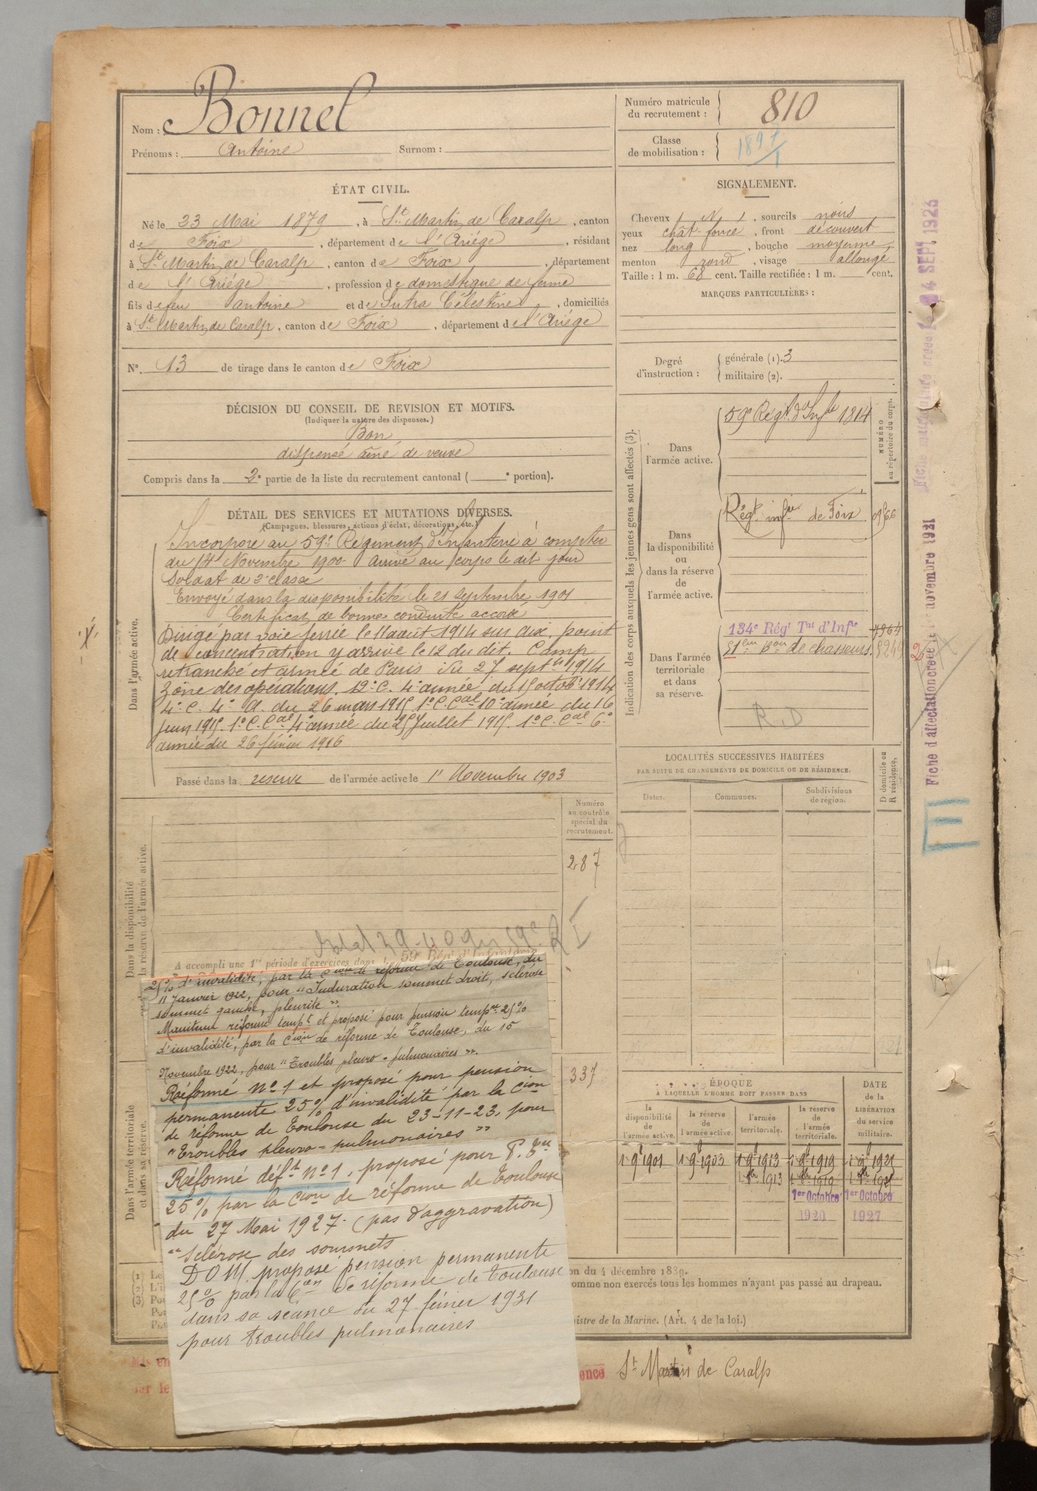 Nom : Bonnel
Prénoms : Antoine Surnom :
Numéro matricule du recrutement : 810
Classe de mobilisation : 1897
ÉTAT CIVIL.
Né le 23 Mai 1879, à St Martin de Caralp, canton
de Foix, département de l'Ariège, résidant
à St Martin de Caralp, canton de Foix, département
de l'Ariège, profession de domestique de ferme
fils de feu Antoine et de Sutra Célestine, domiciliés
à St Martin de Caralp, canton de Foix, département de l'Ariège
N° 13 de tirage dans le canton de Foix
SIGNALEMENT.
Cheveux N, sourcils noirs
yeux chât. foncé, front découvert
nez long, bouche moyenne,
menton rond, visage allongé
Taille : 1 m. 68 cent. Taille rectifiée : 1 m. cent.
MARQUES PARTICULIÈRES :
Degré d'instruction : générale (1). 3
militaire (2).
DÉCISION DU CONSEIL DE REVISION ET MOTIFS.
(Indiquer la nature des dispenses.)
Bon
dispensé aîné de veuve
Compris dans la 2e partie de la liste du recrutement cantonal ( e portion).
DÉTAIL DES SERVICES ET MUTATIONS DIVERSES.
(Campagnes, blessures, actions d'éclat, décorations, etc.)
Dans l'armée active.
Incorporé au 59e Régiment d'infanterie à compter
du 14 Novembre 1900 arrivé au corps le dit jour
Soldat de 2e classe
Envoyé dans la disponibilité le 21 septembre 1901
Certificat de bonne conduite accordé
Dirigé par voie ferrée le 11 août 1914 sur dix. point
de concentration y arrivé le 12 du dit. Camp
retranché et armée de Paris du 27 septbre 1914
Zône des opérations. 12e C. 4e armée du 15 octobre 1914
4e C. 4e A. du 26 mars 1915 1er C. Cal 10e armée du 16
juin 1915. 1er C. Cal 4e armée du 25 Juillet 1915. 1er C. Cal 6e
armée du 26 février 1916
Passé dans la réserve de l'armée active le 1er Novembre 1903
Indication des corps auxquels les jeunes gens sont affectés (3).
NUMÉRO au répertoire du corps.
Dans l'armée active.
59e Régt d'Infie 1814
Dans la disponibilité ou dans la réserve de l'armée active.
Régt infie de Foix
Dans l'armée territoriale et dans sa réserve.
134e Régt Tal d'Infie
51e bon de chasseurs.
R.D
LOCALITÉS SUCCESSIVES HABITÉES
PAR SUITE DE CHANGEMENTS DE DOMICILE OU DE RÉSIDENCE.
Dates. Communes. Subdivisions de région. D domicile ou R résidence.
Numéro au contrôle spécial du recrutement.
287
337
Dans la disponibilité
la réserve de l'armée active.
Dans l'armée territoriale et dans sa réserve.
A accompli une 1re période d'exercices dans
25% d'invalidité, par la Cion de réforme de Toulouse, du
11 Janvier 1922, pour "Induration sommet droit, sclérose
sommet gauche, pleurite".
Maintenu réformé tempre et proposé pour pension tempre 25%
d'invalidité, par la Cion de réforme de Toulouse, du 15
Novembre 1922, pour "Troubles pleuro-pulmonaires".
Réformé N° 1 et proposé pour pension
permanente 25% d'invalidité par la Cion
de réforme de Toulouse du 23-11-23, pour
"Troubles pleuro-pulmonaires"
Réformé déft N° 1. proposé pour P.
25% par la Cion de réforme de Toulouse
du 27 Mai 1927. (pas d'aggravation)
"Sclérose des sommets
D.O.M. proposé pension permanente
25% par la Con de réforme de Toulouse
dans sa séance du 27 février 1931
pour troubles pulmonaires
ÉPOQUE
À LAQUELLE L'HOMME DOIT PASSER DANS
la disponibilité de l'armée active. la réserve de l'armée active. l'armée territoriale. la réserve de l'armée territoriale.
DATE DE LA LIBÉRATION du service militaire.
1 9bre 1901 1 9bre 1903 1 9bre 1913 1 9bre 1919 1 9bre 1921
1er Octobre 1920 1er Octobre 1927
on du 4 décembre 1889.
omme non exercés tous les hommes n'ayant pas passé au drapeau.
nistre de la Marine. (Art. 4 de la loi.)
ence St Martin de Caralp
4 SEPT 1926
Fiche d'affectation créée le novembre 1921